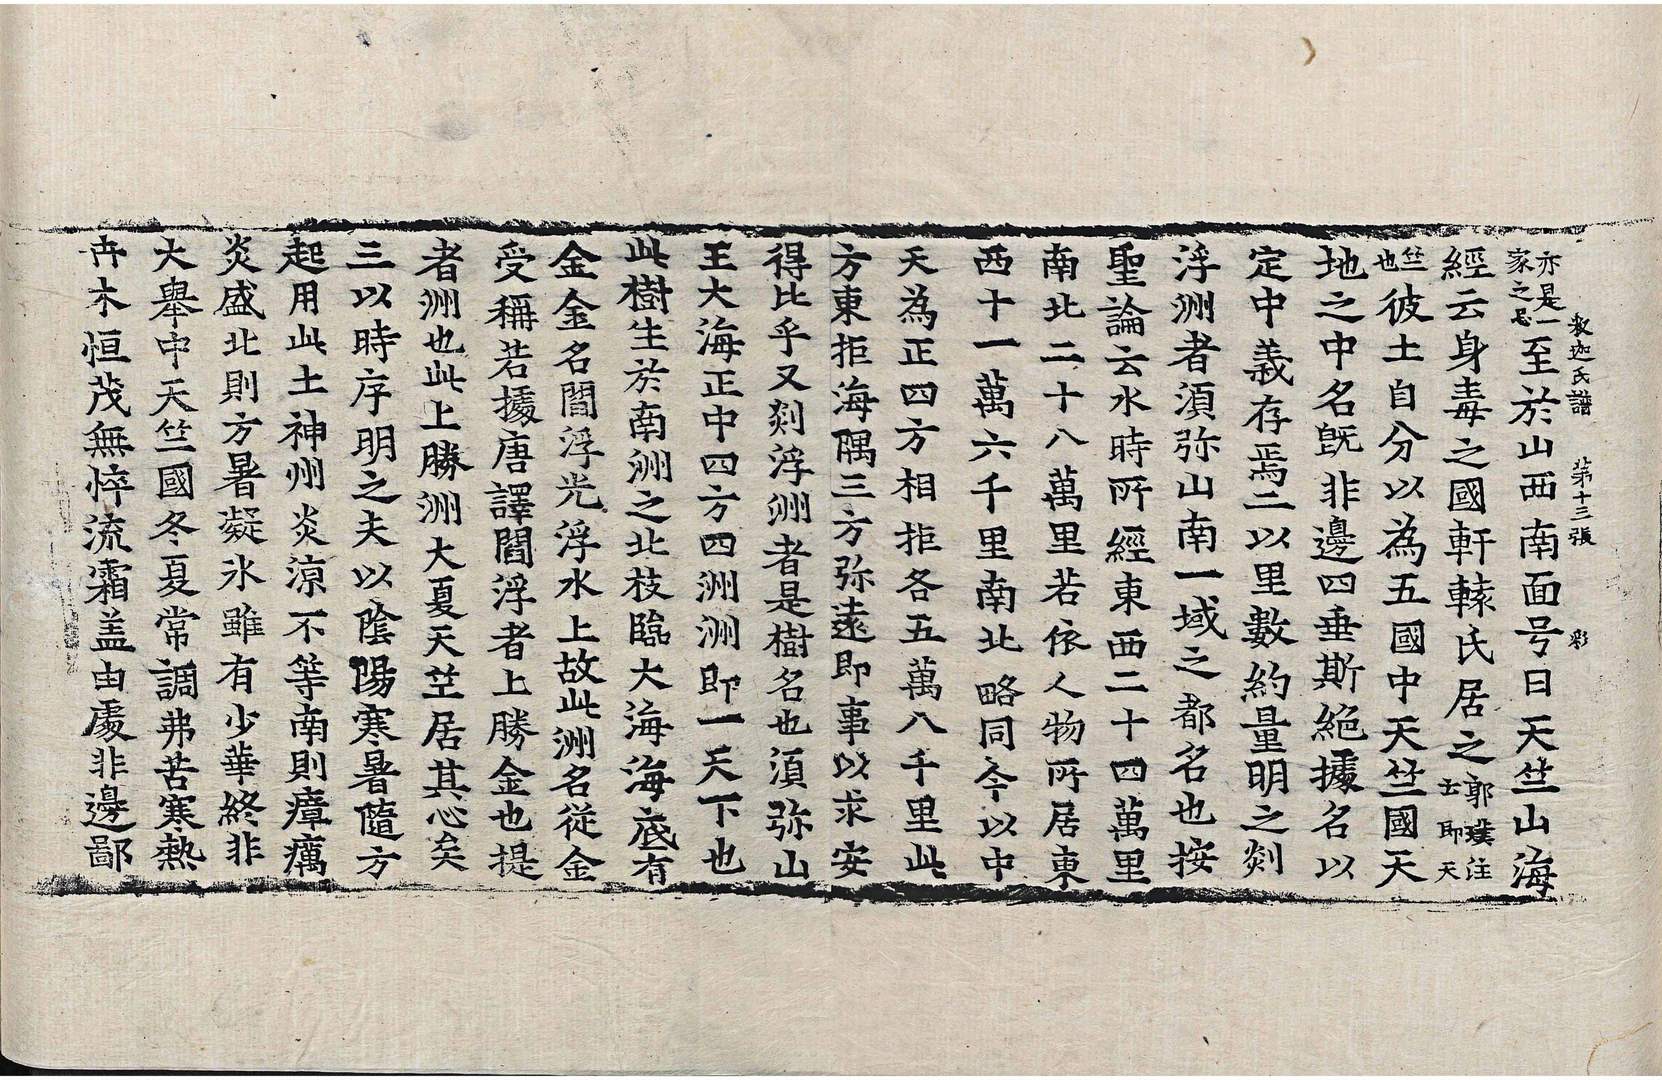 釋迦氏譜 第十三張 彩
亦是一家之 至於山西南面号曰天竺山海
經云身毒之國軒轅氏居之郭璞注云即天
竺也彼土自分以為五國中天竺國天
地之中名既非邊四垂斯絕據名以
定中義存焉二以里數約量明之剡
浮洲者湏弥山南一域之都名也按
聖論云水時所經東西二十四萬里
南北二十八萬里若依人物所居東
西十一萬六千里南北略同今以中
天為正四方相拒各五萬八千里此
方東拒海隅三方弥遠即事以求安
得比乎又剡浮洲者是樹名也湏弥山
王大海正中四方四洲洲即一天下也
此樹生於南洲之北枝臨大海海底有
金金名閻浮光浮水上故此洲名從金
受稱若據唐譯閻浮者上勝金也提
者洲也此上勝洲大夏天竺居其心矣
三以時序明之夫以陰陽寒暑隨方
起用此土神州炎涼不等南則瘴癘
炎盛北則方暑凝氷雖有少華終非
大舉中天竺國冬夏常調弗苦寒熱
卉木恒茂無悴流霜盖由處非邊鄙